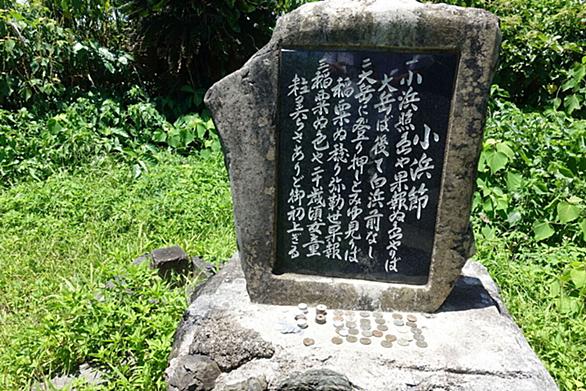 小浜節
一小浜照島や果報ぬ島やりば
大岳ば後て白浜前なし
二大岳に登り押しとみゆ見りば
稲粟ぬ稔り弥勒世果報
三稲粟ぬ色や二十歳頃女童
粒美らさありど御初上ぎる